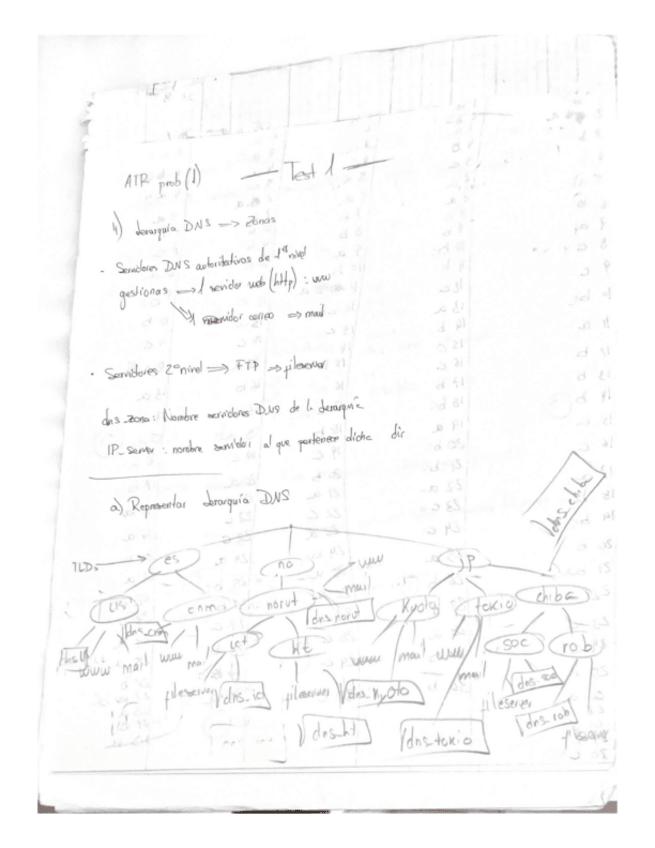 ATR prob(1) — Test 1 —
4) Jerarquía DNS => Zonas
- Servidores DNS autoritativos de 1er nivel
gestionas => 1 servidor web (http) : www
servidor correo => mail
· Servidores 2º nivel => FTP => fileserver
dns_zona: Nombre servidores DNS de la Jerarquía
IP_Server : nombre servidor al que pertenece dicha dir
a) Representar Jerarquía DNS
dns_chiba
TLDs es no jp
www
mail
us cnm norut dns_norut Kyoto tokio chiba
dns_us dns_cnm ict ht soc rob
www mail www mail www mail www mail dns_soc
fileserver dns_ic fileserver dns_Kyoto fileserver dns_rob
dns_ht dns_tokio fileserver